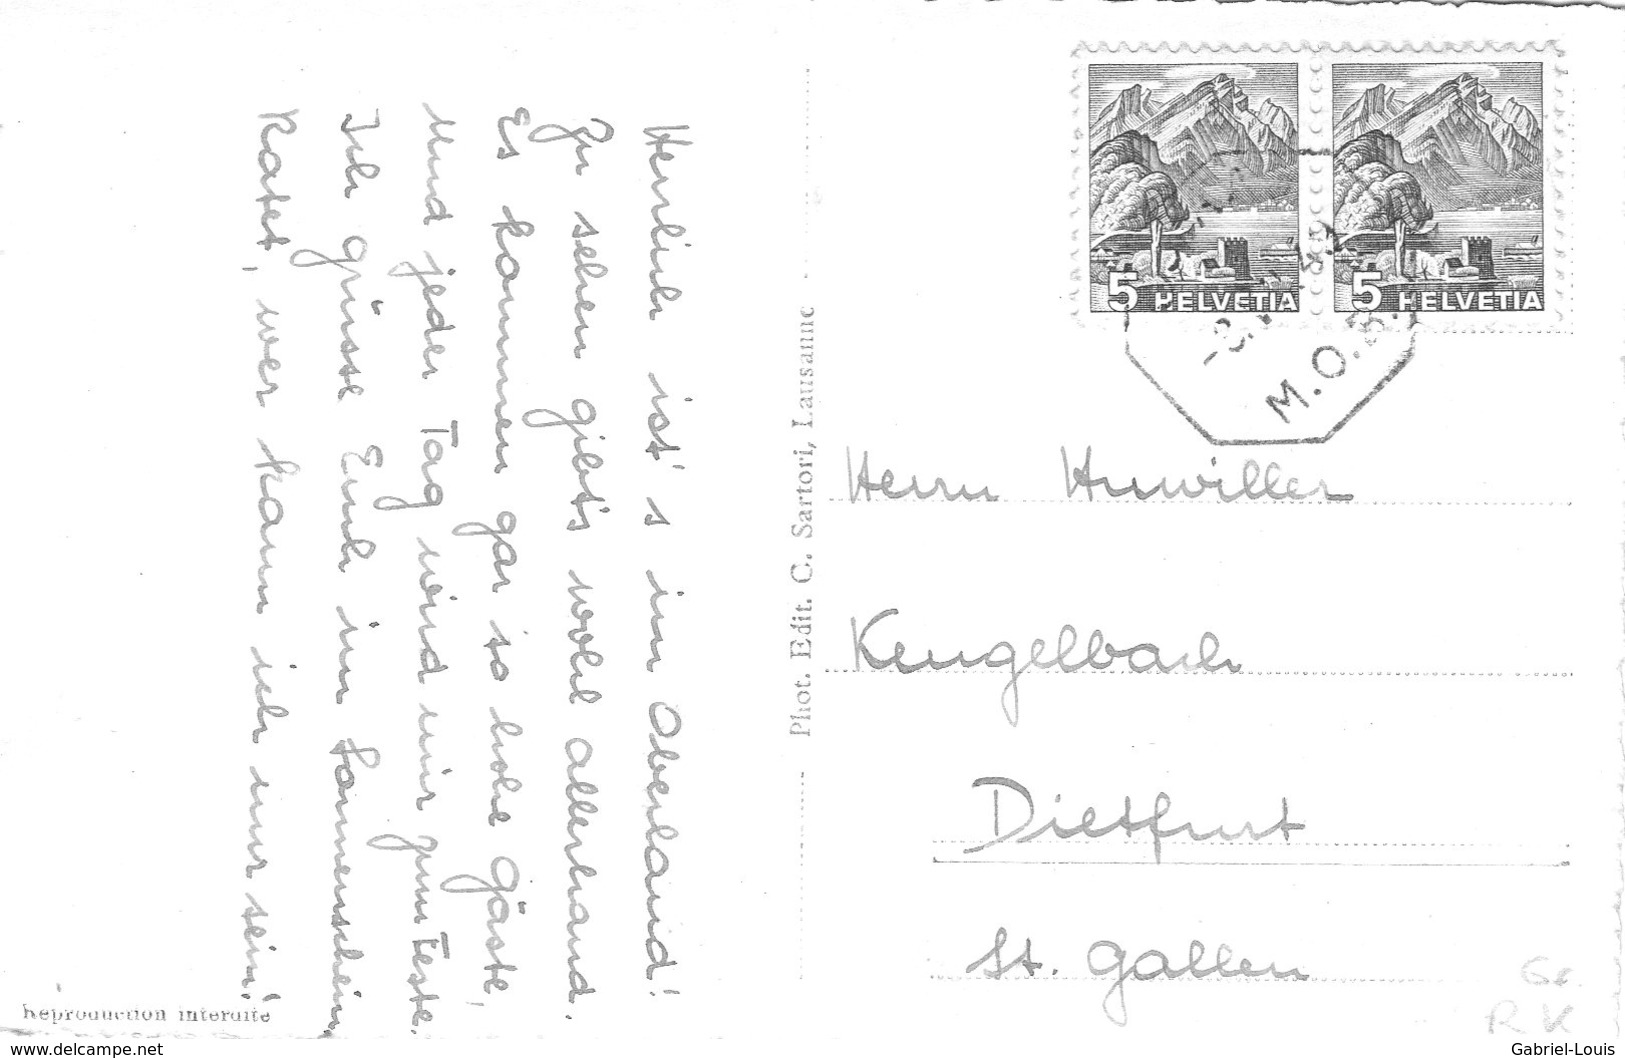 Herrlich ist's im Oberland!
Zu sehen gibt's wohl allerhand.
Es kommen gar so hohe Gäste,
Und jeder Tag wird mir zum Feste.
Ich grüsse Euch im Sonnenschein,
Ratet, wer kann ich nur sein!
Reproduction interdite
Phot. Edit. C. Sartori, Lausanne
5 HELVETIA
5 HELVETIA
M.O.B.
Herrn Huwiller
Kengelbach
Dietfurt
St. Gallen
RK
www.delcampe.net
Gabriel-Louis